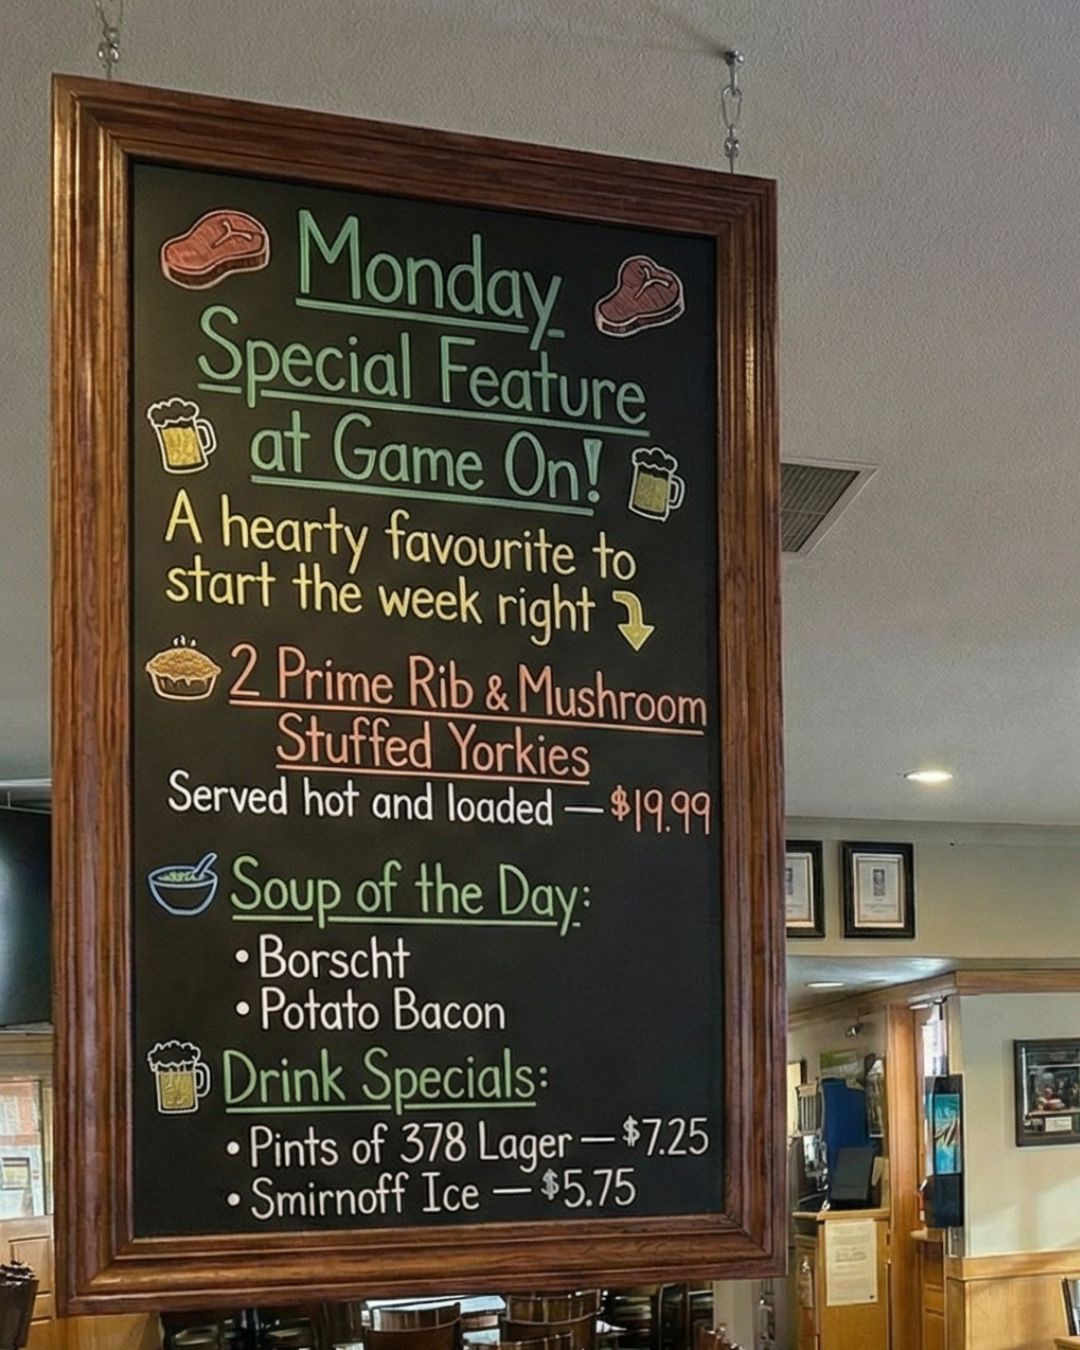 Monday
Special Feature
at Game On!
A hearty favourite to
start the week right
2 Prime Rib & Mushroom
Stuffed Yorkies
Served hot and loaded — $19.99
Soup of the Day:
• Borscht
• Potato Bacon
Drink Specials:
• Pints of 378 Lager — $7.25
• Smirnoff Ice — $5.75